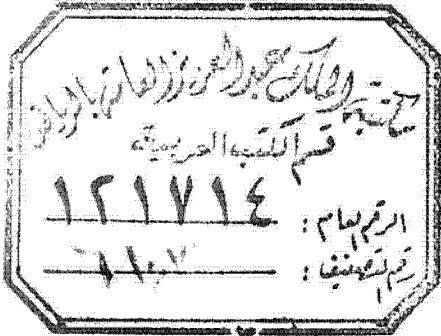 مكتبة الملك عبد العزيز العامة بالرياض
قسم الكتب العربية
الرقم العام : ١٢١٧١٤
رقم التصنيف :